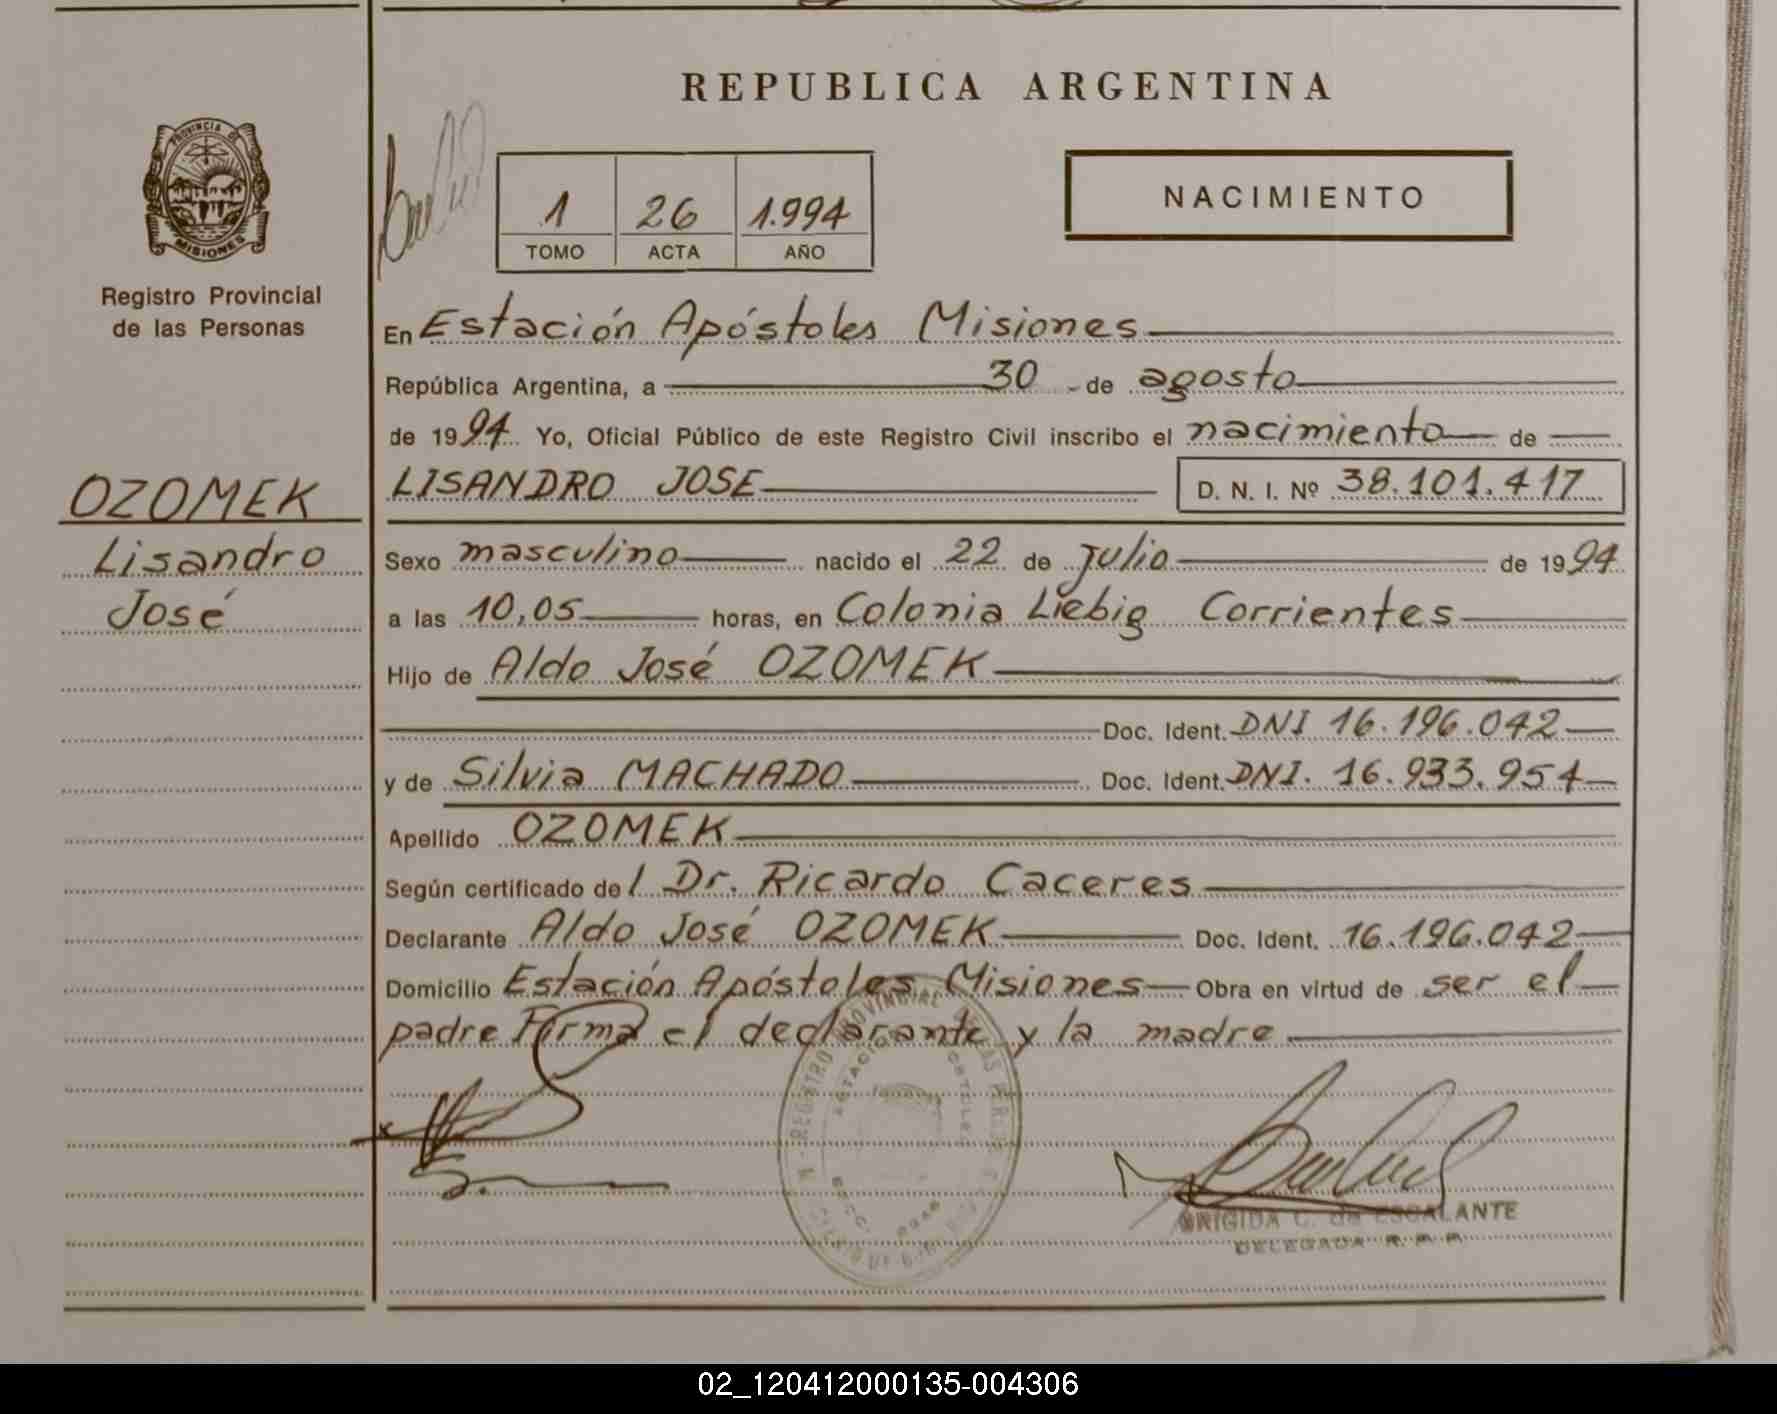 REPUBLICA ARGENTINA
PROVINCIA DE
MISIONES
Registro Provincial
de las Personas
1 26 1.994
TOMO ACTA AÑO
NACIMIENTO
En Estación Apóstoles Misiones
República Argentina, a 30 de agosto
de 1994 Yo, Oficial Público de este Registro Civil inscribo el nacimiento de
LISANDRO JOSE D. N. I. Nº 38.101.417
OZOMEK
Lisandro
José
Sexo masculino nacido el 22 de julio de 1994
a las 10,05 horas, en Colonia Liebig Corrientes
Hijo de Aldo José OZOMEK
Doc. Ident. DNI 16.196.042
y de Silvia MACHADO Doc. Ident. DNI. 16.933.954
Apellido OZOMEK
Según certificado del Dr. Ricardo Caceres
Declarante Aldo José OZOMEK Doc. Ident. 16.196.042
Domicilio Estación Apóstoles Misiones Obra en virtud de ser el
padre Firma el declarante y la madre
REGISTRO PROVINCIAL DE LAS
BRIGIDA C. de ESCALANTE
DELEGADA R. P. P.
02_120412000135-004306